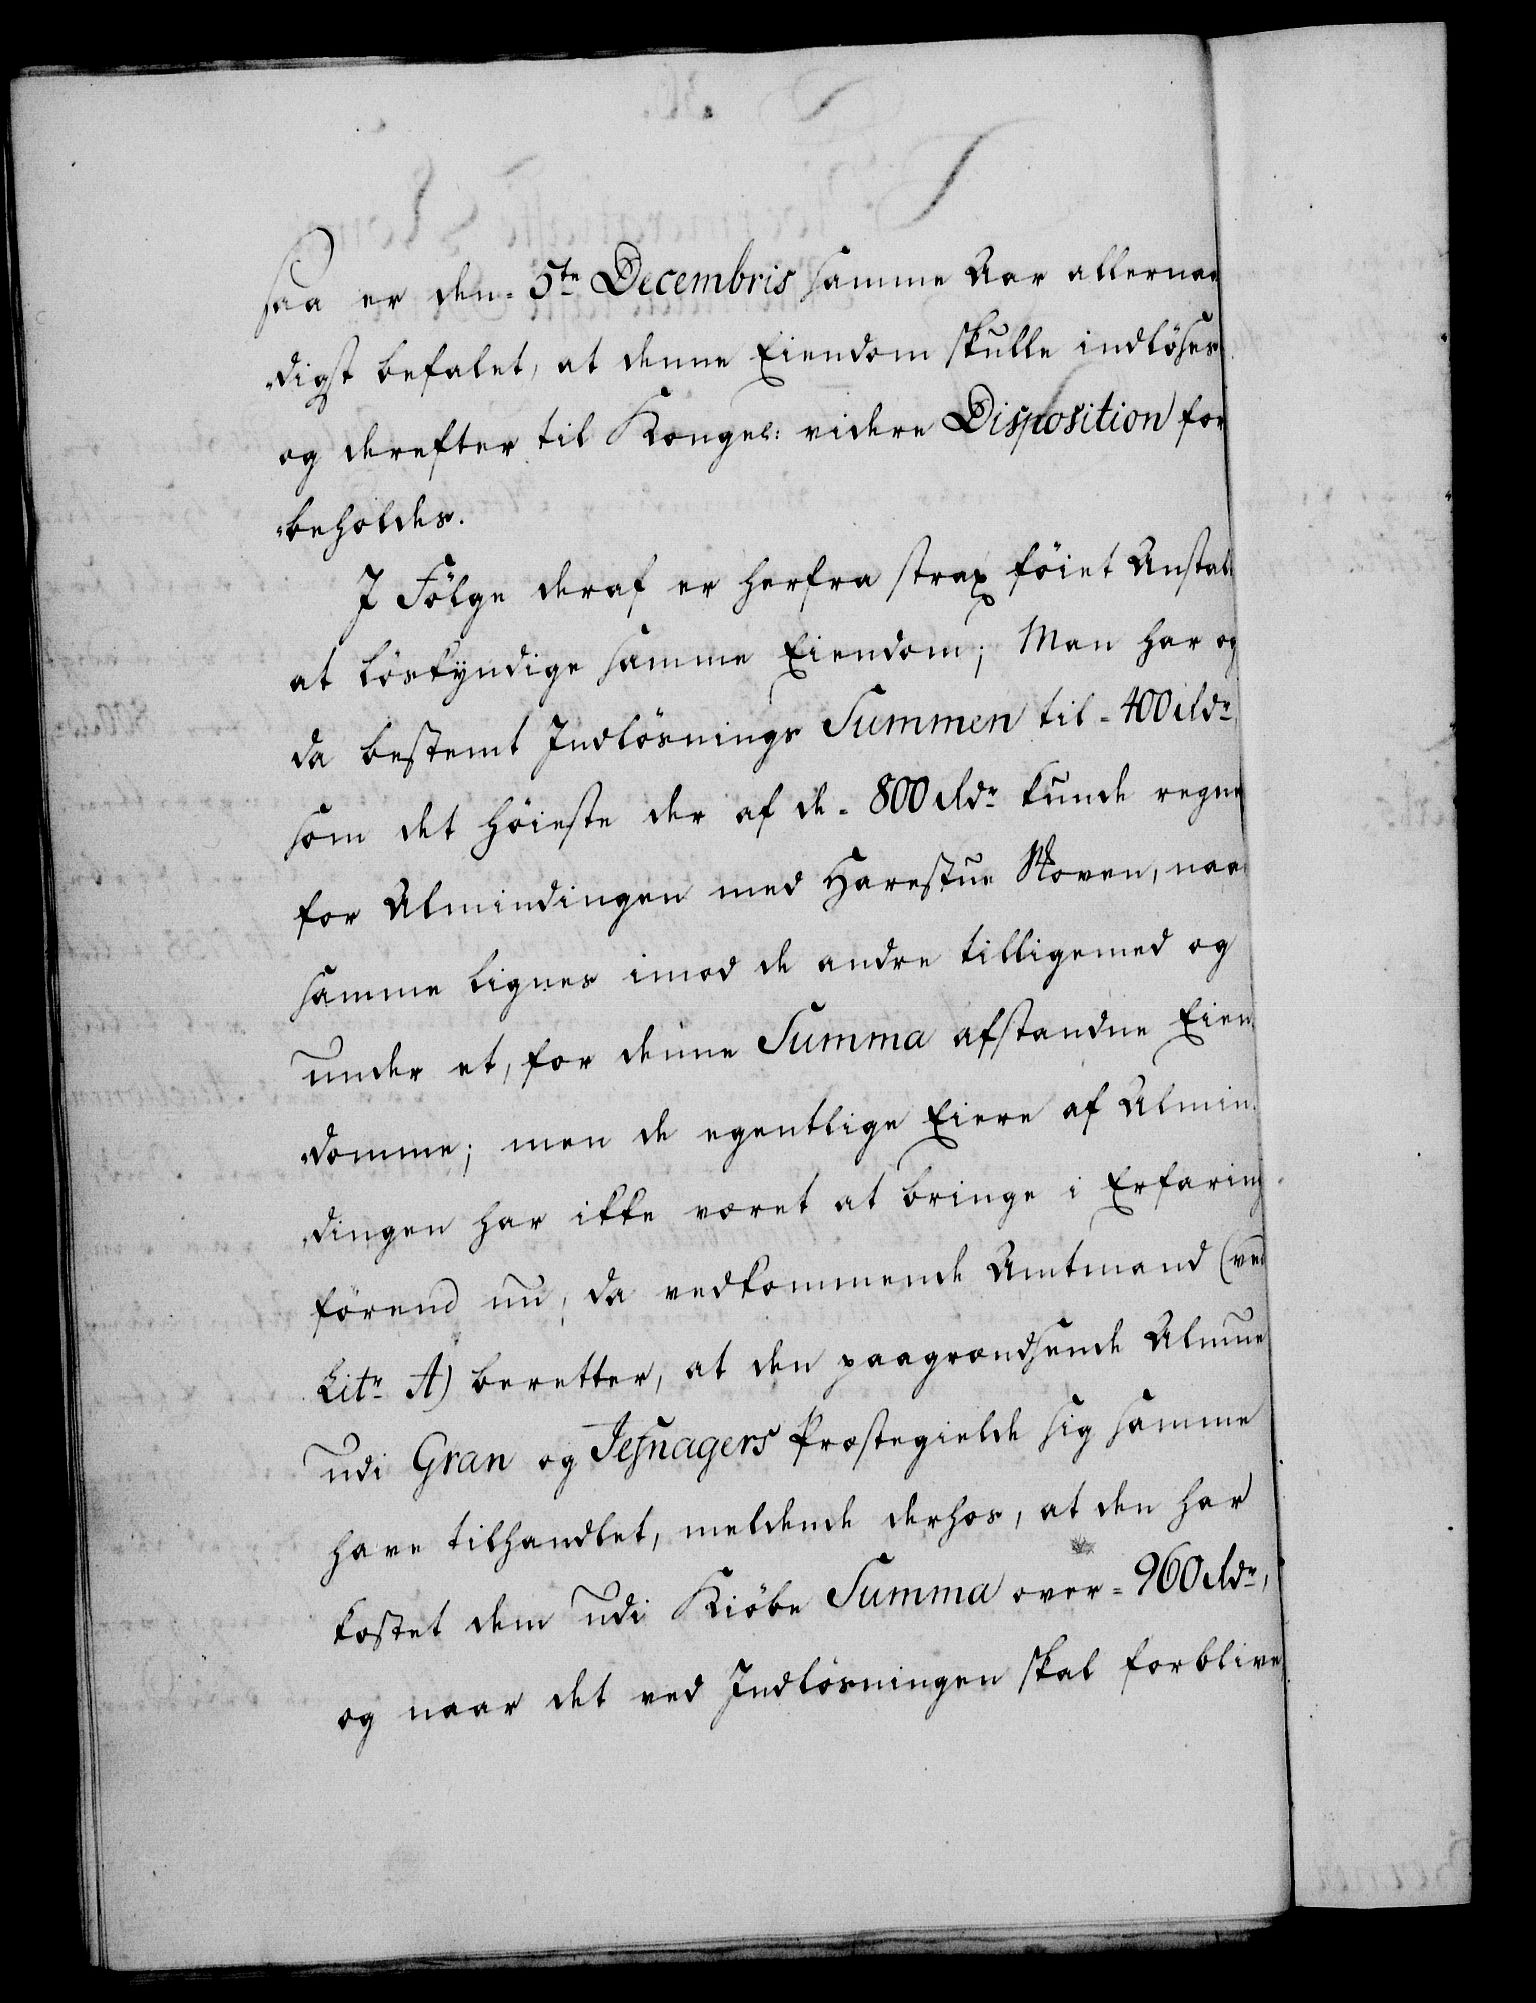 saa er den 5te Decembris samme Aar allernaa
„digst befalet, at denne Eiendom skulle indløses
og derefter til Kongel: videre Disposition for
„beholdes.
I Følge deraf er herfra strax føiet Anstalt
at løskyndige samme Eiendom; Man har og
da bestemt Indløsnings Summen til 400 rdr
som det høieste der af de 800 rdr kunde regne
for Almindingen med Harestue Skoven, naar
samme lignes imod de andre tilligemed og
under et, for denne Summa afstandne Eien
„domme; men de egentlige Eiere af Almin
„dingen har ikke været at bringe i Erfaring
førend nu, da vedkommende Amtmand (ved
Litr A) beretter, at den paagrændsende Almue
udi Gran og Jesnagers Præstegielde sig samme
have tilhandlet, meldende derhos, at den har
kostet dem udi Kiøbe Summa over 960 rdr,
og naar det ved Indløsningen skal forblive